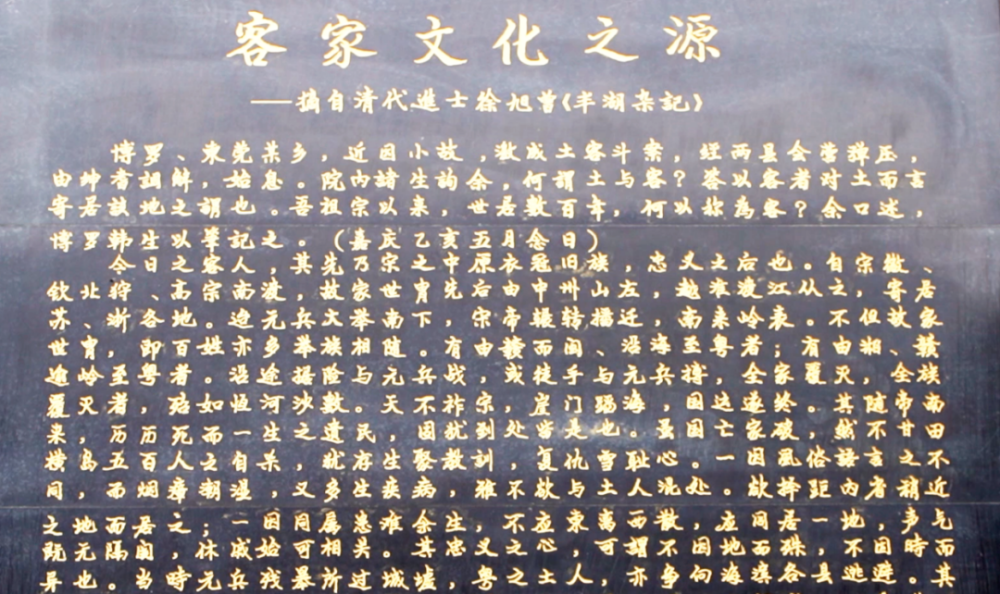 客家文化之源
——摘自清代進士徐旭曾《丰湖杂記》
博罗、東莞某乡，近因小故，激成土客斗案，经两县会营弹压，
由绅耆調解，始息。院内諸生詢余，何謂土与客？荅以客者对土而言
寄居該地之謂也。吾祖宗以来，世居数百年，何以称為客？余口述，
博罗韩生以筆記之。（嘉庆乙亥五月念日）
今日之客人，其先乃宗之中原衣冠旧族，忠义之后也。自宗徽、
钦北狩、高宗南渡，故家世胄先后由中州山左，越淮渡江从之，寄居
苏、浙各地。迨元兵大举南下，宋帝辗转播迁 南来岭表。不但故家
世胄，即百姓亦多举族相随。有由赣而闽、沿海至粤者；有由湘、赣
逾岭至粤者。沿途据险与元兵战，或徒手与元兵搏，全家覆灭，全族
覆灭者，殆如恒河沙数。天不祚宗，崖门蹈海，国运遂终。其随帝南
来，历历死而一生之遗民，固犹到处皆是也。虽国亡家破，然不甘田
横岛五百人之自杀，犹存生聚教訓，复仇雪耻心。一因風俗語言之不
同，而烟瘴潮湿，又多生疾病，雅不欲与土人混处。欲择距内省稍近
之地而居之；一因同属患难余生，不应東离西散，应同居一地，声气
既无隔阂，休戚始可相关。其忠义之心，可謂不因地而殊，不因時而
异也。当時元兵残暴所过城墟，粤之土人，亦争向海滨各县逃避。其